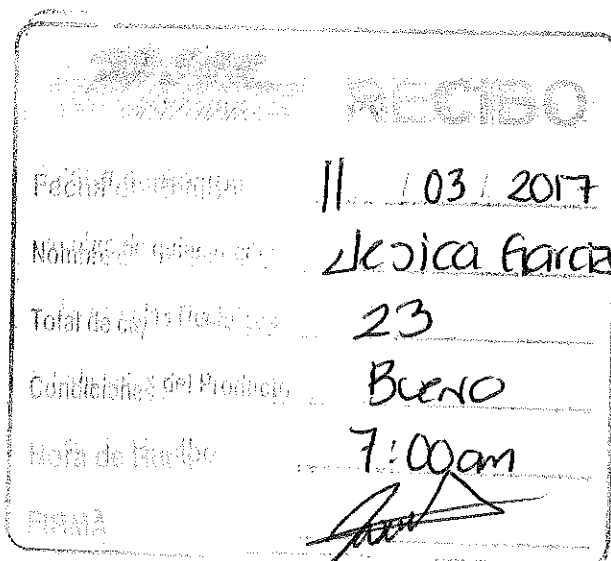 RECIBO
Fecha 11 / 03 / 2017
Nombre Jesica Garcia
Total de 23
Condiciones del Producto Bueno
Hora de 7:00am
FIRMA